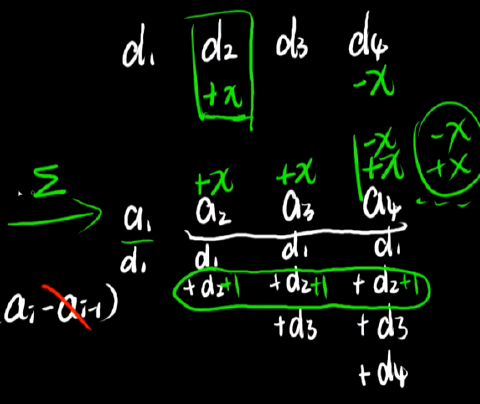 d₁ d₂ d₃ d₄
+x -x
-x -x
+x +x
Σ +x +x
a₁ a₂ a₃ a₄
d₁ d₁ d₁ d₁
+d₂+1 +d₂+1 +d₂+1
aᵢ-aᵢ₋₁) +d₃ +d₃
+d₄